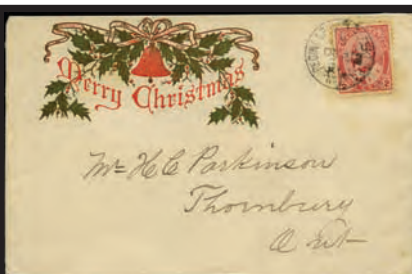 Merry Christmas
Mr H C Parkinson
Thornbury
Ont